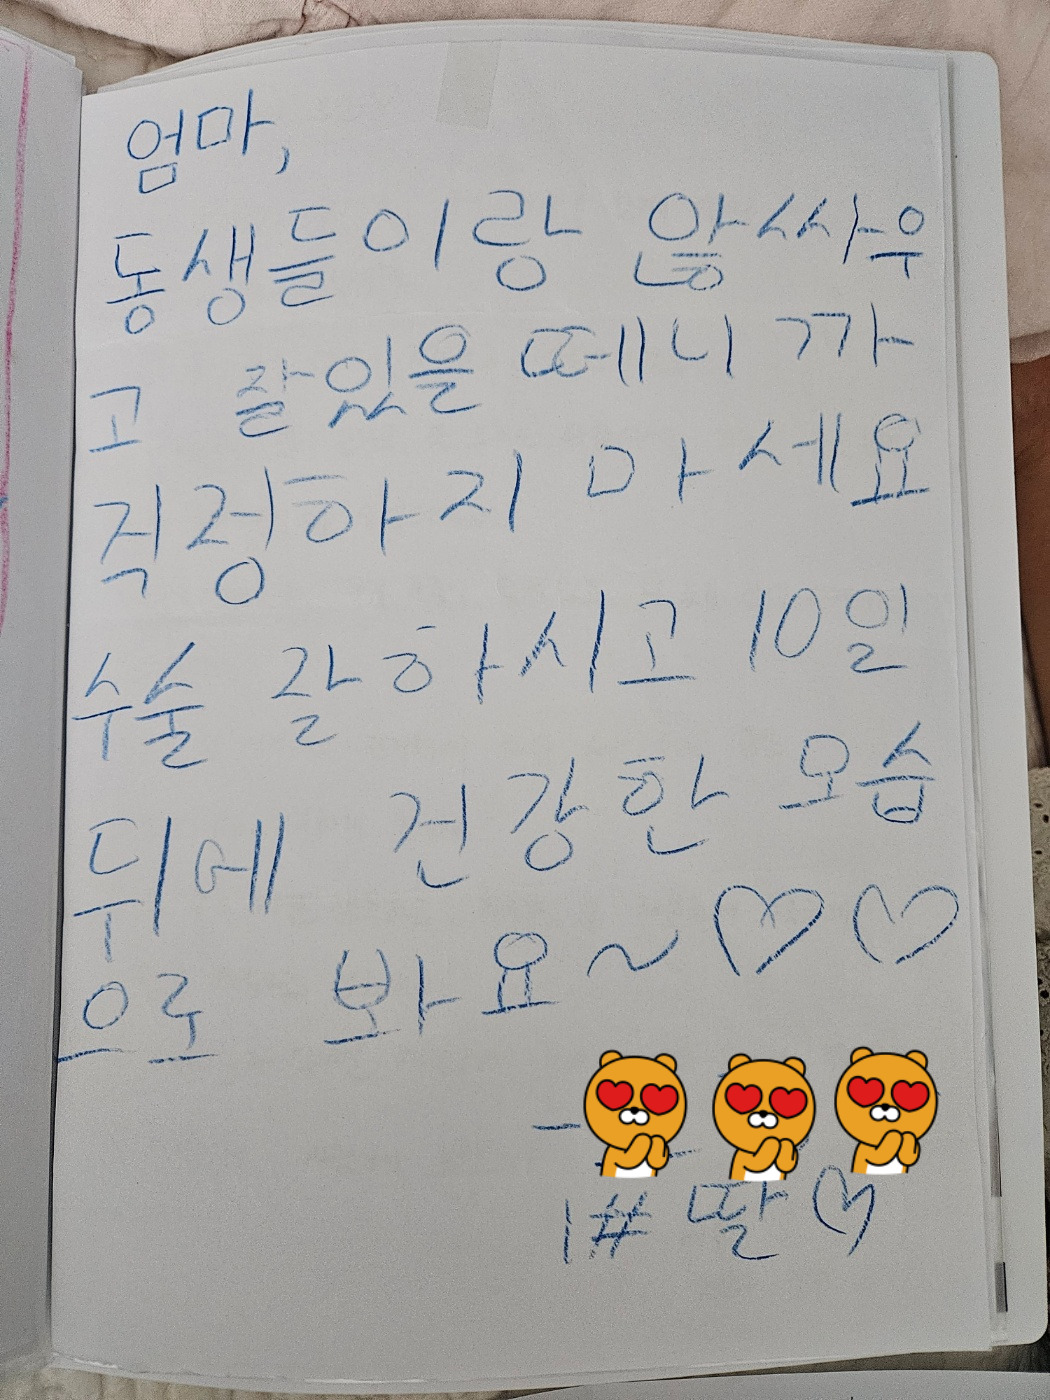 엄마,
동생들이랑 않싸우
고 잘있을 떼니 까
직정하지 마세요
수술 잘하시고 10일
뒤에 건강한 모습
으로 봐요~♡♡
-
1# 딸♡